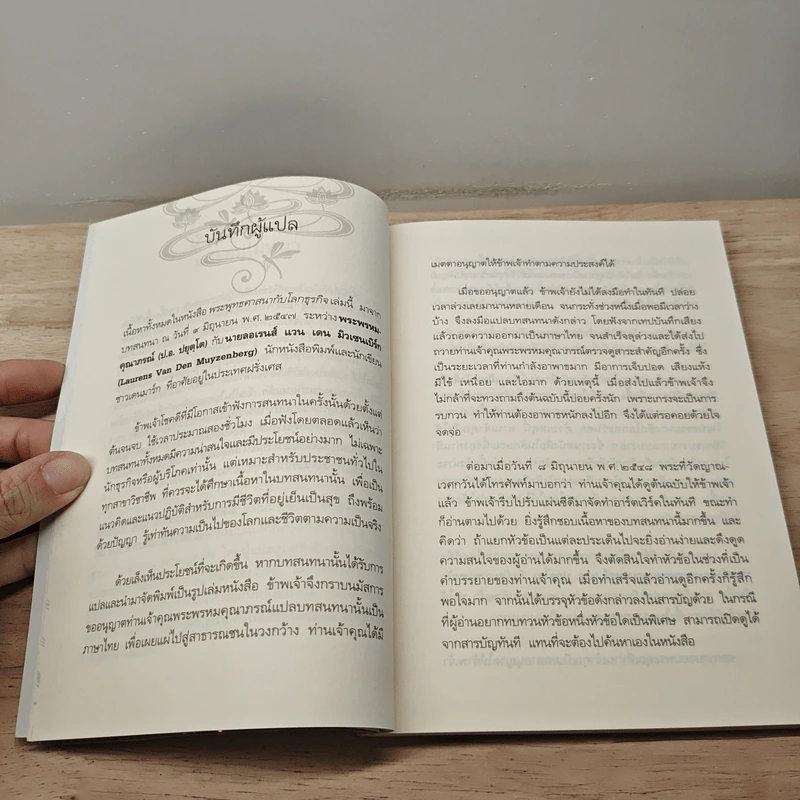 บันทึกผู้แปล
เนื้อหาทั้งหมดในหนังสือ พระพุทธศาสนากับโลกธุรกิจ เล่มนี้ มาจาก
บทสนทนา ณ วันที่ ๙ มิถุนายน พ.ศ. ๒๕๔๗ ระหว่าง พระพรหม-
คุณาภรณ์ (ป.อ. ปยุตฺโต) กับ นายลอเรนส์ แวน เดน มิวเซนเบิร์ก
(Laurens Van Den Muyzenberg) นักหนังสือพิมพ์และนักเขียน
ชาวเดนมาร์ก ที่อาศัยอยู่ในประเทศฝรั่งเศส
ข้าพเจ้าโชคดีที่มีโอกาสเข้าฟังการสนทนาในครั้งนั้นด้วยตั้งแต่
ต้นจนจบ ใช้เวลาประมาณสองชั่วโมง เมื่อฟังโดยตลอดแล้วเห็นว่า
บทสนทนาทั้งหมดมีความน่าสนใจและมีประโยชน์อย่างมาก ไม่เฉพาะ
นักธุรกิจหรือผู้บริโภคเท่านั้น แต่เหมาะสำหรับประชาชนทั่วไปใน
ทุกสาขาวิชาชีพ ที่ควรจะได้ศึกษาเนื้อหาในบทสนทนานั้น เพื่อเป็น
แนวคิดและแนวปฏิบัติสำหรับการมีชีวิตที่อยู่เย็นเป็นสุข ถึงพร้อม
ด้วยปัญญา รู้เท่าทันความเป็นไปของโลกและชีวิตตามความเป็นจริง
ด้วยเล็งเห็นประโยชน์ที่จะเกิดขึ้น หากบทสนทนานั้นได้รับการ
แปลและนำมาจัดพิมพ์เป็นรูปเล่มหนังสือ ข้าพเจ้าจึงกราบนมัสการ
ขออนุญาตท่านเจ้าคุณพระพรหมคุณาภรณ์แปลบทสนทนานั้นเป็น
ภาษาไทย เพื่อเผยแผ่ไปสู่สาธารณชนในวงกว้าง ท่านเจ้าคุณได้มี
เมตตาอนุญาตให้ข้าพเจ้าทำตามความประสงค์ได้
เมื่อขออนุญาตแล้ว ข้าพเจ้ายังไม่ได้ลงมือทำในทันที ปล่อย
เวลาล่วงเลยมานานหลายเดือน จนกระทั่งช่วงหนึ่งเมื่อพอมีเวลาว่าง
บ้าง จึงลงมือแปลบทสนทนาดังกล่าว โดยฟังจากเทปบันทึกเสียง
แล้วถอดความออกมาเป็นภาษาไทย จนสำเร็จลุล่วงและได้ส่งไป
ถวายท่านเจ้าคุณพระพรหมคุณาภรณ์ตรวจดูสาระสำคัญอีกครั้ง ซึ่ง
เป็นระยะเวลาที่ท่านกำลังอาพาธมาก มีอาการเจ็บปอด เสียงแห้ง
มีไข้ เหนื่อย และไอมาก ด้วยเหตุนี้ เมื่อส่งไปแล้วข้าพเจ้าจึง
ไม่กล้าที่จะทวงถามถึงต้นฉบับนี้บ่อยครั้งนัก เพราะเกรงจะเป็นการ
รบกวน ทำให้ท่านต้องอาพาธหนักลงไปอีก จึงได้แต่รอคอยด้วยใจ
จดจ่อ
ต่อมาเมื่อวันที่ ๘ มิถุนายน พ.ศ. ๒๕๔๘ พระที่วัดญาณ-
เวศกวันได้โทรศัพท์มาบอกว่า ท่านเจ้าคุณได้ดูต้นฉบับให้ข้าพเจ้า
แล้ว ข้าพเจ้ารีบไปรับแผ่นซีดีมาจัดทำอาร์ตเวิร์คในทันที ขณะทำ
ก็อ่านตามไปด้วย ยิ่งรู้สึกชอบเนื้อหาของบทสนทนานี้มากขึ้น และ
คิดว่า ถ้าแยกหัวข้อเป็นแต่ละประเด็นไปจะยิ่งอ่านง่ายและดึงดูด
ความสนใจของผู้อ่านได้มากขึ้น จึงตัดสินใจทำหัวข้อในช่วงที่เป็น
คำบรรยายของท่านเจ้าคุณ เมื่อทำเสร็จแล้วอ่านดูอีกครั้งก็รู้สึก
พอใจมาก จากนั้นได้บรรจุหัวข้อดังกล่าวลงในสารบัญด้วย ในกรณี
ที่ผู้อ่านอยากทบทวนหัวข้อหนึ่งหัวข้อใดเป็นพิเศษ สามารถเปิดดูได้
จากสารบัญทันที แทนที่จะต้องไปค้นหาเองในหนังสือ